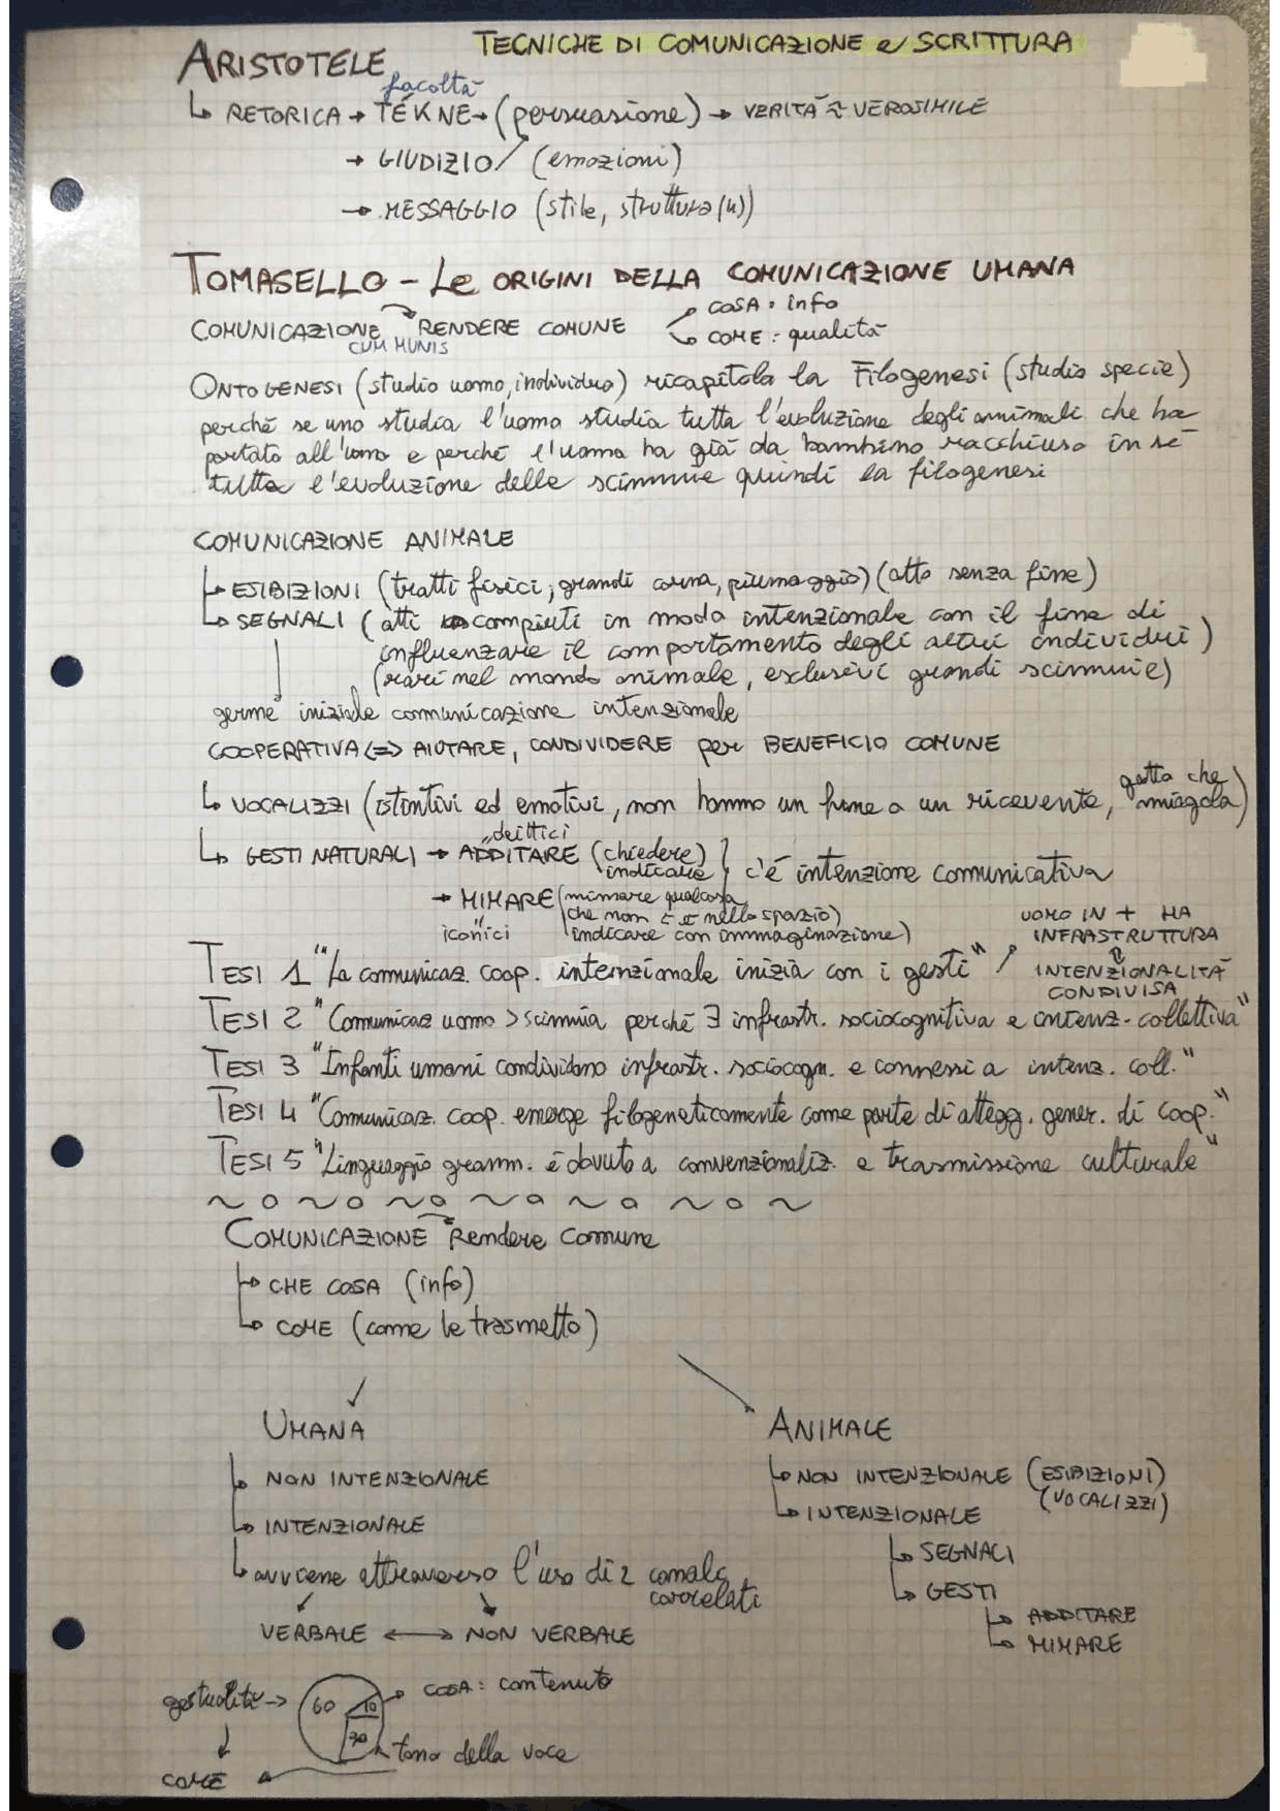 TECNICHE DI COMUNICAZIONE e SCRITTURA
ARISTOTELE
facoltà
↳ RETORICA → TÉKNE → (persuasione) → VERITÀ ≈ VEROSIMILE
→ GIUDIZIO (emozioni)
→ MESSAGGIO (stile, struttura(u))
TOMASELLO - Le ORIGINI DELLA COMUNICAZIONE UMANA
COMUNICAZIONE → RENDERE COMUNE
CUM MUNIS
COSA: info
COME: qualità
ONTOGENESI (studio uomo, individuo) ricapitola la Filogenesi (studio specie)
perché se uno studia l'uomo studia tutta l'evoluzione degli animali che ha
portato all'uomo e perché l'uomo ha già da bambino racchiuso in sé
tutta l'evoluzione delle scimmie quindi la filogenesi
COMUNICAZIONE ANIMALE
↳ ESIBIZIONI (tratti fisici; grandi corna, piumaggio) (atto senza fine)
↳ SEGNALI (atti compiuti in modo intenzionale con il fine di
influenzare il comportamento degli altri individui)
(rari nel mondo animale, esclusivi grandi scimmie)
germe iniziale comunicazione intenzionale
COOPERATIVA (=> AIUTARE, CONDIVIDERE per BENEFICIO COMUNE
↳ VOCALIZZI (istintivi ed emotivi, non hanno un fine o un ricevente, gatto che miagola)
deittici
↳ GESTI NATURALI → ADDITARE (chiedere) indicare } c'é intenzione comunicativa
→ MIMARE (mimare qualcosa
che non c'è nello spazio)
iconici (indicare con immaginazione)
UOMO IN + HA
INFRASTRUTTURA
INTENZIONALITÀ
CONDIVISA
TESI 1 "La comunicaz. coop. intenzionale inizia con i gesti"
TESI 2 "Comunicaz uomo > scimmia perché ∃ infrastr. sociocognitiva e intenz. collettiva"
TESI 3 "Infanti umani condividono infrastr. sociocogn. e connessi a intenz. coll."
TESI 4 "Comunicaz. coop. emerge filogeneticamente come parte di attegg. gener. di coop."
TESI 5 "Linguaggio gramm. é dovuto a convenzionaliz. e trasmissione culturale"
COMUNICAZIONE → Rendere Comune
↳ CHE COSA (info)
↳ COME (come le trasmetto)
UMANA
↳ NON INTENZIONALE
↳ INTENZIONALE
↳ avviene attraverso l'uso di 2 canali
correlati
VERBALE ↔ NON VERBALE
ANIMALE
↳ NON INTENZIONALE (ESIBIZIONI)
(VOCALIZZI)
↳ INTENZIONALE
↳ SEGNALI
↳ GESTI
↳ ADDITARE
↳ MIMARE
gestualità →
60
10
30
COSA: contenuto
tono della voce
COME